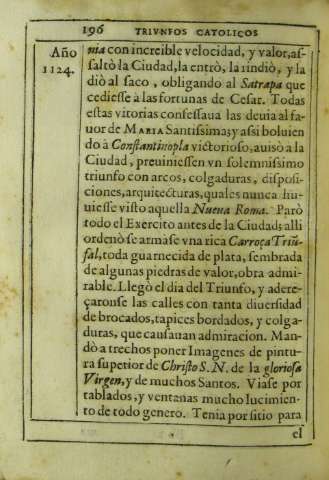 196 TRIVNFOS CATOLICOS
Año
1124.
nia con increible velocidad, y valor, as-
saltò la Ciudad, la entrò, la rindiò, y la
diò al saco, obligando al Satrapa que
cediesse à las fortunas de Cesar. Todas
estas vitorias confessaua las deuia al fa-
uor de MARIA Santissima; y assi boluien
do à Constantinopla victorioso, auisò a la
Ciudad, preuiniessen vn solemnissimo
triunfo con arcos, colgaduras, disposi-
ciones, arquitecturas, quales nunca hu-
uiesse visto aquella Nueua Roma. Parò
todo el Exercito antes de la Ciudad; alli
ordenò se armase vna rica Carroça Triũ-
fal, toda guarnecida de plata, sembrada
de algunas piedras de valor, obra admi-
rable. Llegò el dia del Triunfo, y adere-
çaronse las calles con tanta diuersidad
de brocados, tapices bordados, y colga-
duras, que causauan admiracion. Man-
dò a trechos poner Imagenes de pintu-
ra superior de Christo S. N. de la gloriosa
Virgen, y de muchos Santos. Viase por
tablados, y ventanas mucho lucimien-
to de todo genero. Tenia por sitio para
el